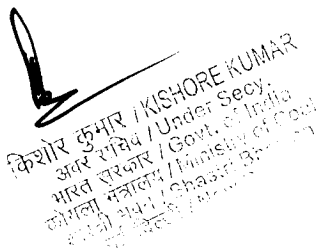 किशोर कुमार / KISHORE KUMAR
अवर सचिव / Under Secy.
भारत सरकार / Govt. of India
कोयला मंत्रालय / Ministry of Coal
भवन / Shastri